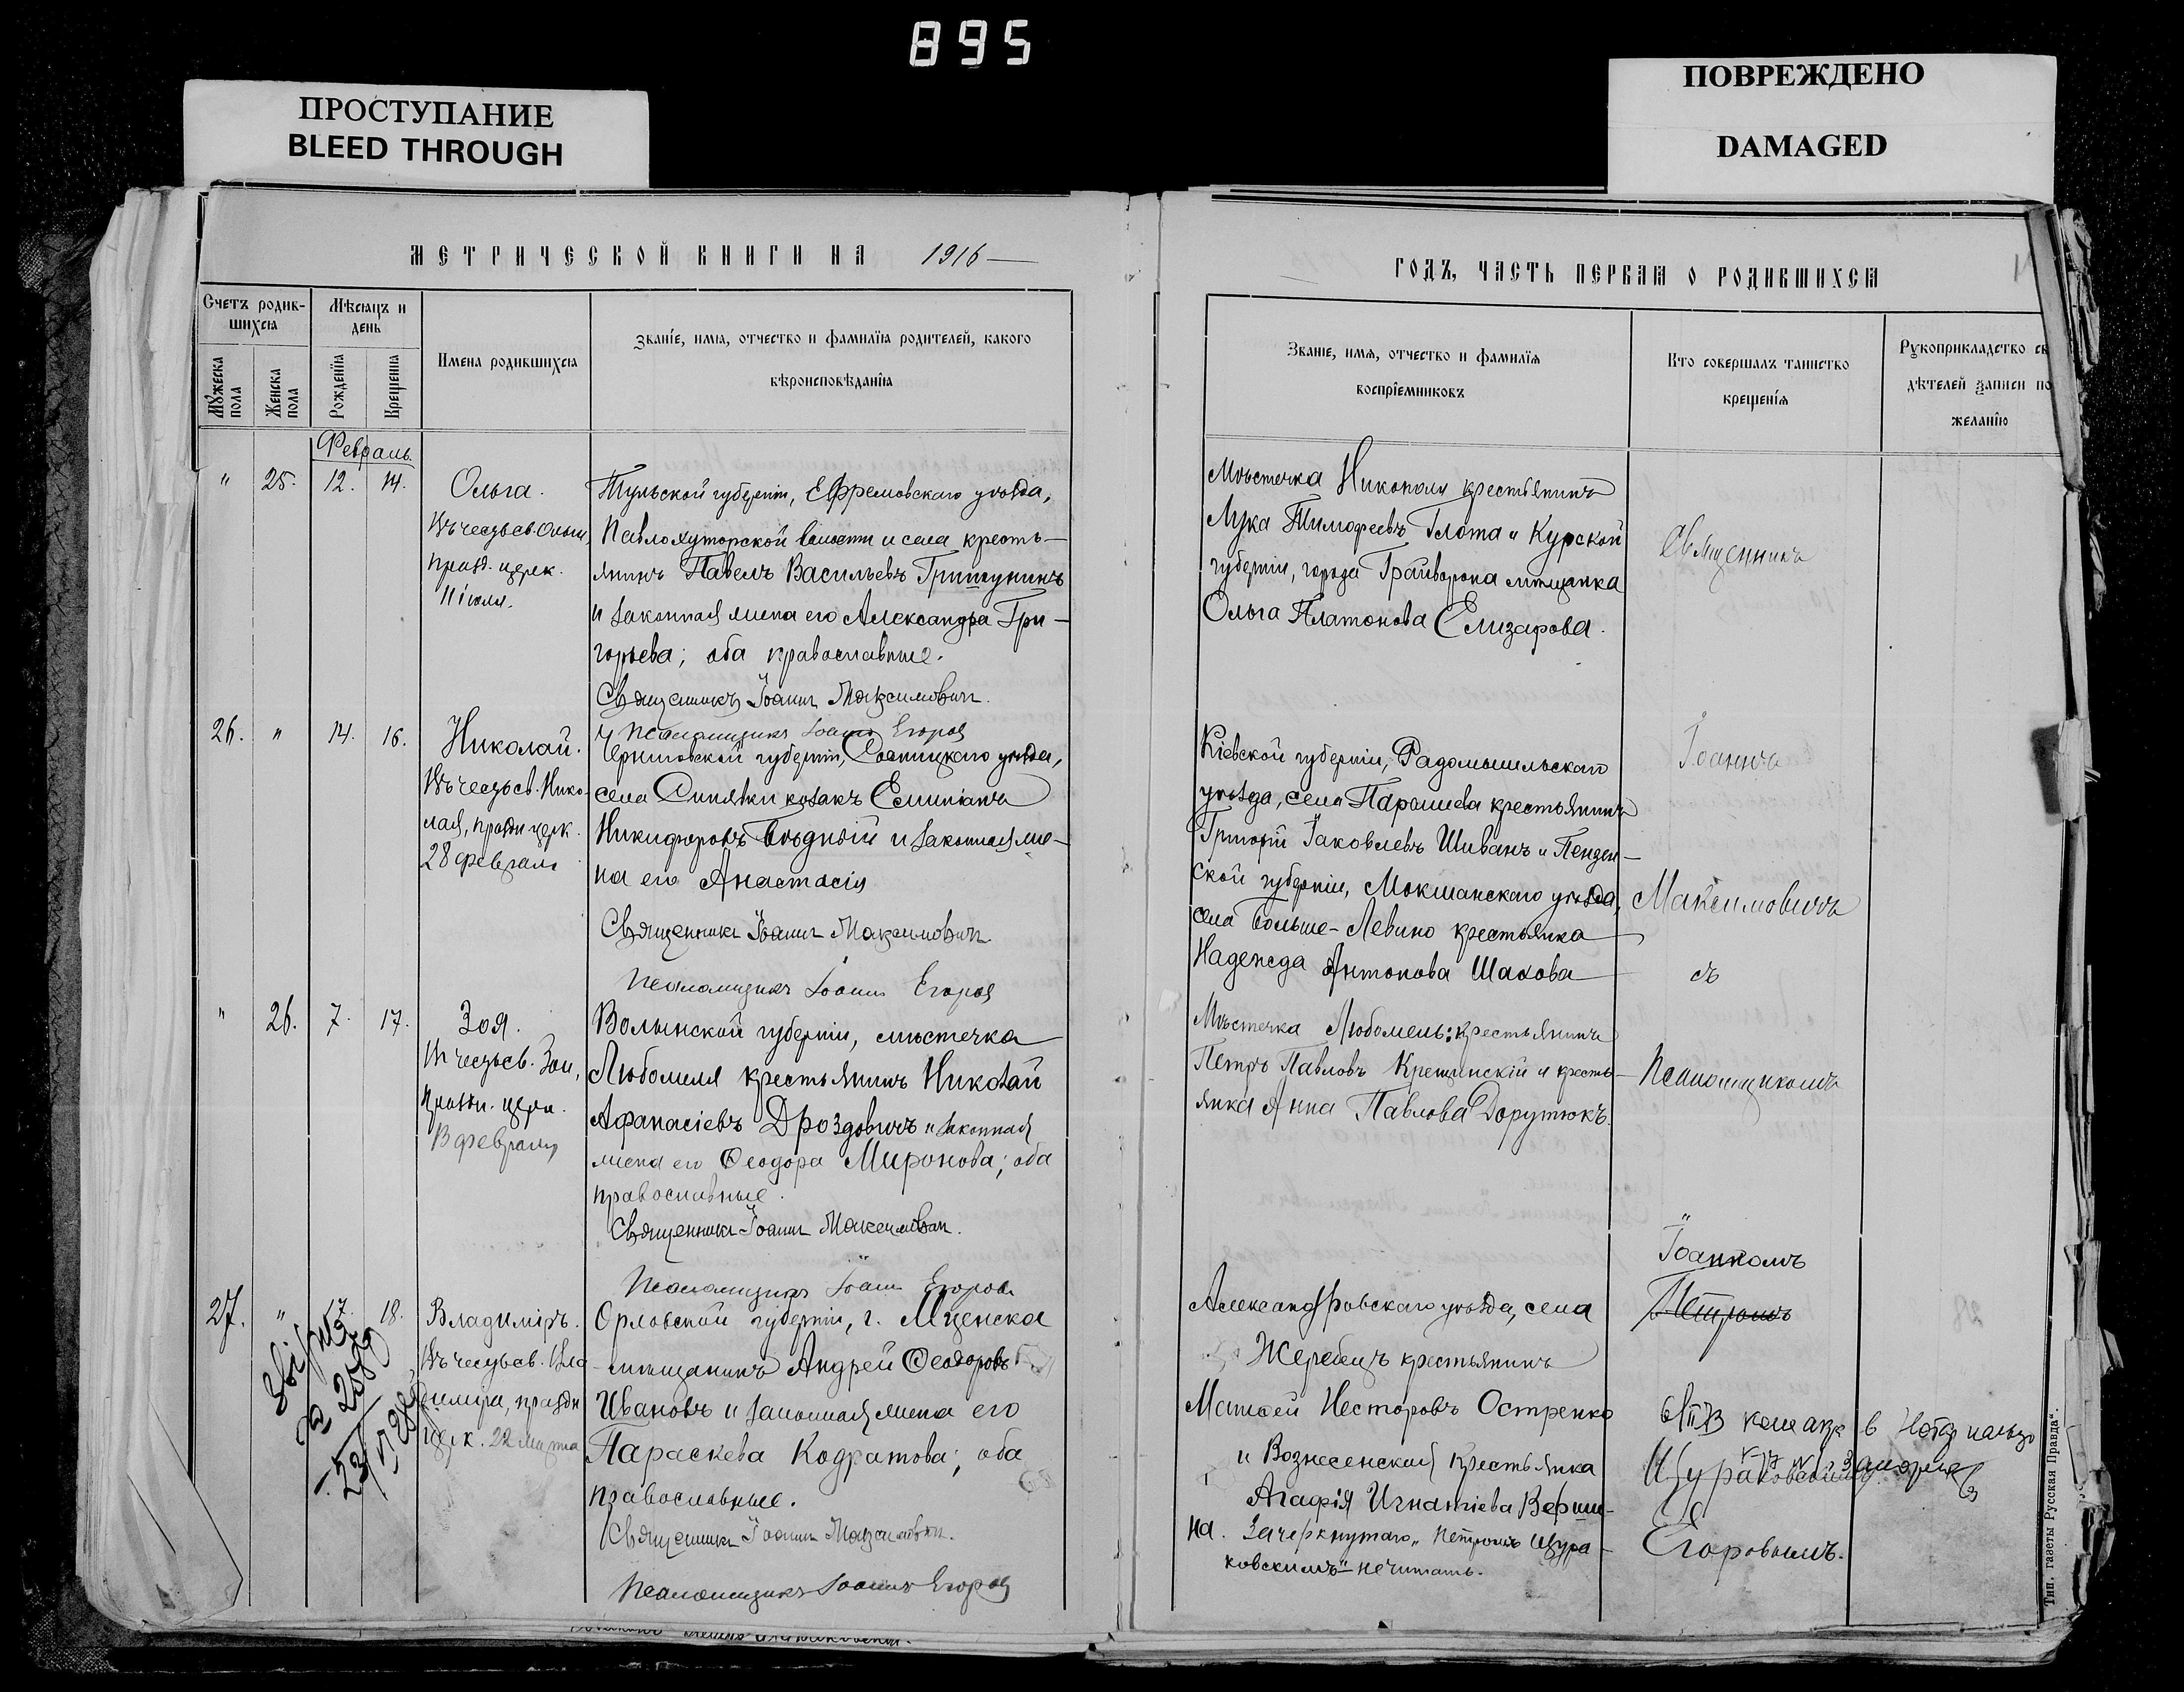 895
ПРОСТУПАНИЕ
BLEED THROUGH
ПОВРЕЖДЕНО
DAMAGED
МЕТРИЧЕСКОЙ КНИГИ НА 1916
Счетъ родив-
шихся
Мѣсяцъ и
день
Мужеска
пола
Женска
пола
Рожденія
Крещенія
Имена родившихся
Званіе, имя, отчество и фамилія родителей, какого
вѣроисповѣданія
Февраль.
" 25. 12. 14.
Ольга.
Въ честь св. Ольги,
празд. церк.
11 іюля.
Тульской губерніи, Ефремовскаго уѣзда,
Павлохуторской волости и села кресть-
янинъ Павелъ Васильевъ Гришунинъ
и законная жена его Александра Гри-
горьева; оба православные.
Священникъ Іоаннъ Максимович.
Псаломщикъ Іоаннъ Егоров
26. " 14. 16.
Николай.
Въ честь св. Нико-
лая, праздн церк.
28 февраля
Черниговской губерніи, Сосницкаго уѣзда,
села Синявки козакъ Емиліанъ
Никифоровъ Бѣдный и законная же-
на его Анастасія
Священникъ Іоаннъ Максимович
Псаломщикъ Іоаннъ Егоров
" 26. 7. 17.
Зоя.
Въ честь св. Зои,
праздн. церк.
13 февраля
Волынской губерніи, мѣстечка
Любомля крестьянинъ Николай
Афанасіевъ Дроздовичъ и законная
жена его Ѳеодора Миронова; оба
православные.
Священникъ Іоаннъ Максимович.
Псаломщикъ Іоаннъ Егоров
27. " 17. 18.
Владиміръ.
Въ честь св. Вла
диміра, праздн
церк. 22 марта
Орловской губерніи, г. Мценска
мѣщанинъ Андрей Ѳеодоровъ
Ивановъ и законная жена его
Параскева Кодратова; оба
православные.
Священникъ Іоаннъ Максимович.
Псаломщикъ Іоаннъ Егоров
ГОДЪ, ЧАСТЬ ПЕРВАЯ О РОДИВШИХСЯ
Званіе, имя, отчество и фамилія
воспріемниковъ
Кто совершалъ таинство
крещенія
Рукоприкладство св
дѣтелей записи по
желанію
Мѣстечка Никополя крестьянинъ
Лука Тимофеевъ Глота и Курской
губерніи, города Грайворона мѣщанка
Ольга Платонова Елизарова.
Кіевской губерніи, Радомышльскаго
уѣзда, села крестьянинъ
Григорій Іаковлевъ Шиванъ и Пензен-
ской губерніи, Мокшанскаго уѣзда,
села Больше-Левино крестьянка
Надежда Антонова Шахова
Мѣстечка Любомель: крестьянинъ
Петръ Павловъ Крещинскій и кресть-
янка Анна Павлова Дорутюкъ.
Александровскаго уѣзда, села
Жеребецъ крестьянинъ
Матѳей Несторовъ Остренко
и Вознесенской крестьянка
Агафія Игнатіева Верши-
на. Зачеркнутаго "Петромъ Щура-
ковскимъ" не читать.
Священникъ
Іоаннъ
Максимовичъ
съ
Псаломщикомъ
Іоанномъ
Петромъ
Щураковскимъ
Егоровымъ.
Тип. газеты „Русская Правда“.